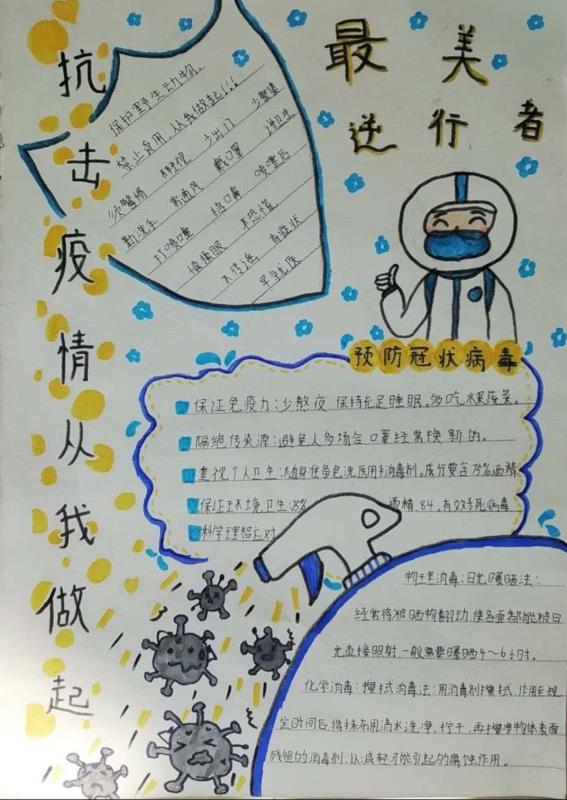 抗击疫情从我做起
最美
逆行者
保护野生动物。
禁止食用,从我做起!!!
须警惕 莽忽视 少出门 少聚集
勤洗手 常通风 戴口罩 讲卫生
打喷嚏 捂口鼻 喷嚏后
慎揉眼 不恐慌
不传谣 有症状
早就医
预防冠状病毒
保证免疫力:少熬夜 保持充足睡眠。多吃水果蔬菜。
隔绝传染源:避免人多场合 口罩经常换新的。
重视个人卫生:随身准备免洗医用消毒剂。成分要含75%酒精
保证环境卫生:75% 酒精.84.有效杀死病毒
科学理智应对
物理消毒:日光曝晒法:
经常将被晒物翻动,使各面都能被日
光直接照射,一般需要曝晒4~6小时。
化学消毒:擦拭消毒法:用消毒剂擦拭,作用至规
定时间后,将抹布用清水洗净,拧干,再擦净物体表面
残留的消毒剂,以减轻可能引起的腐蚀作用。